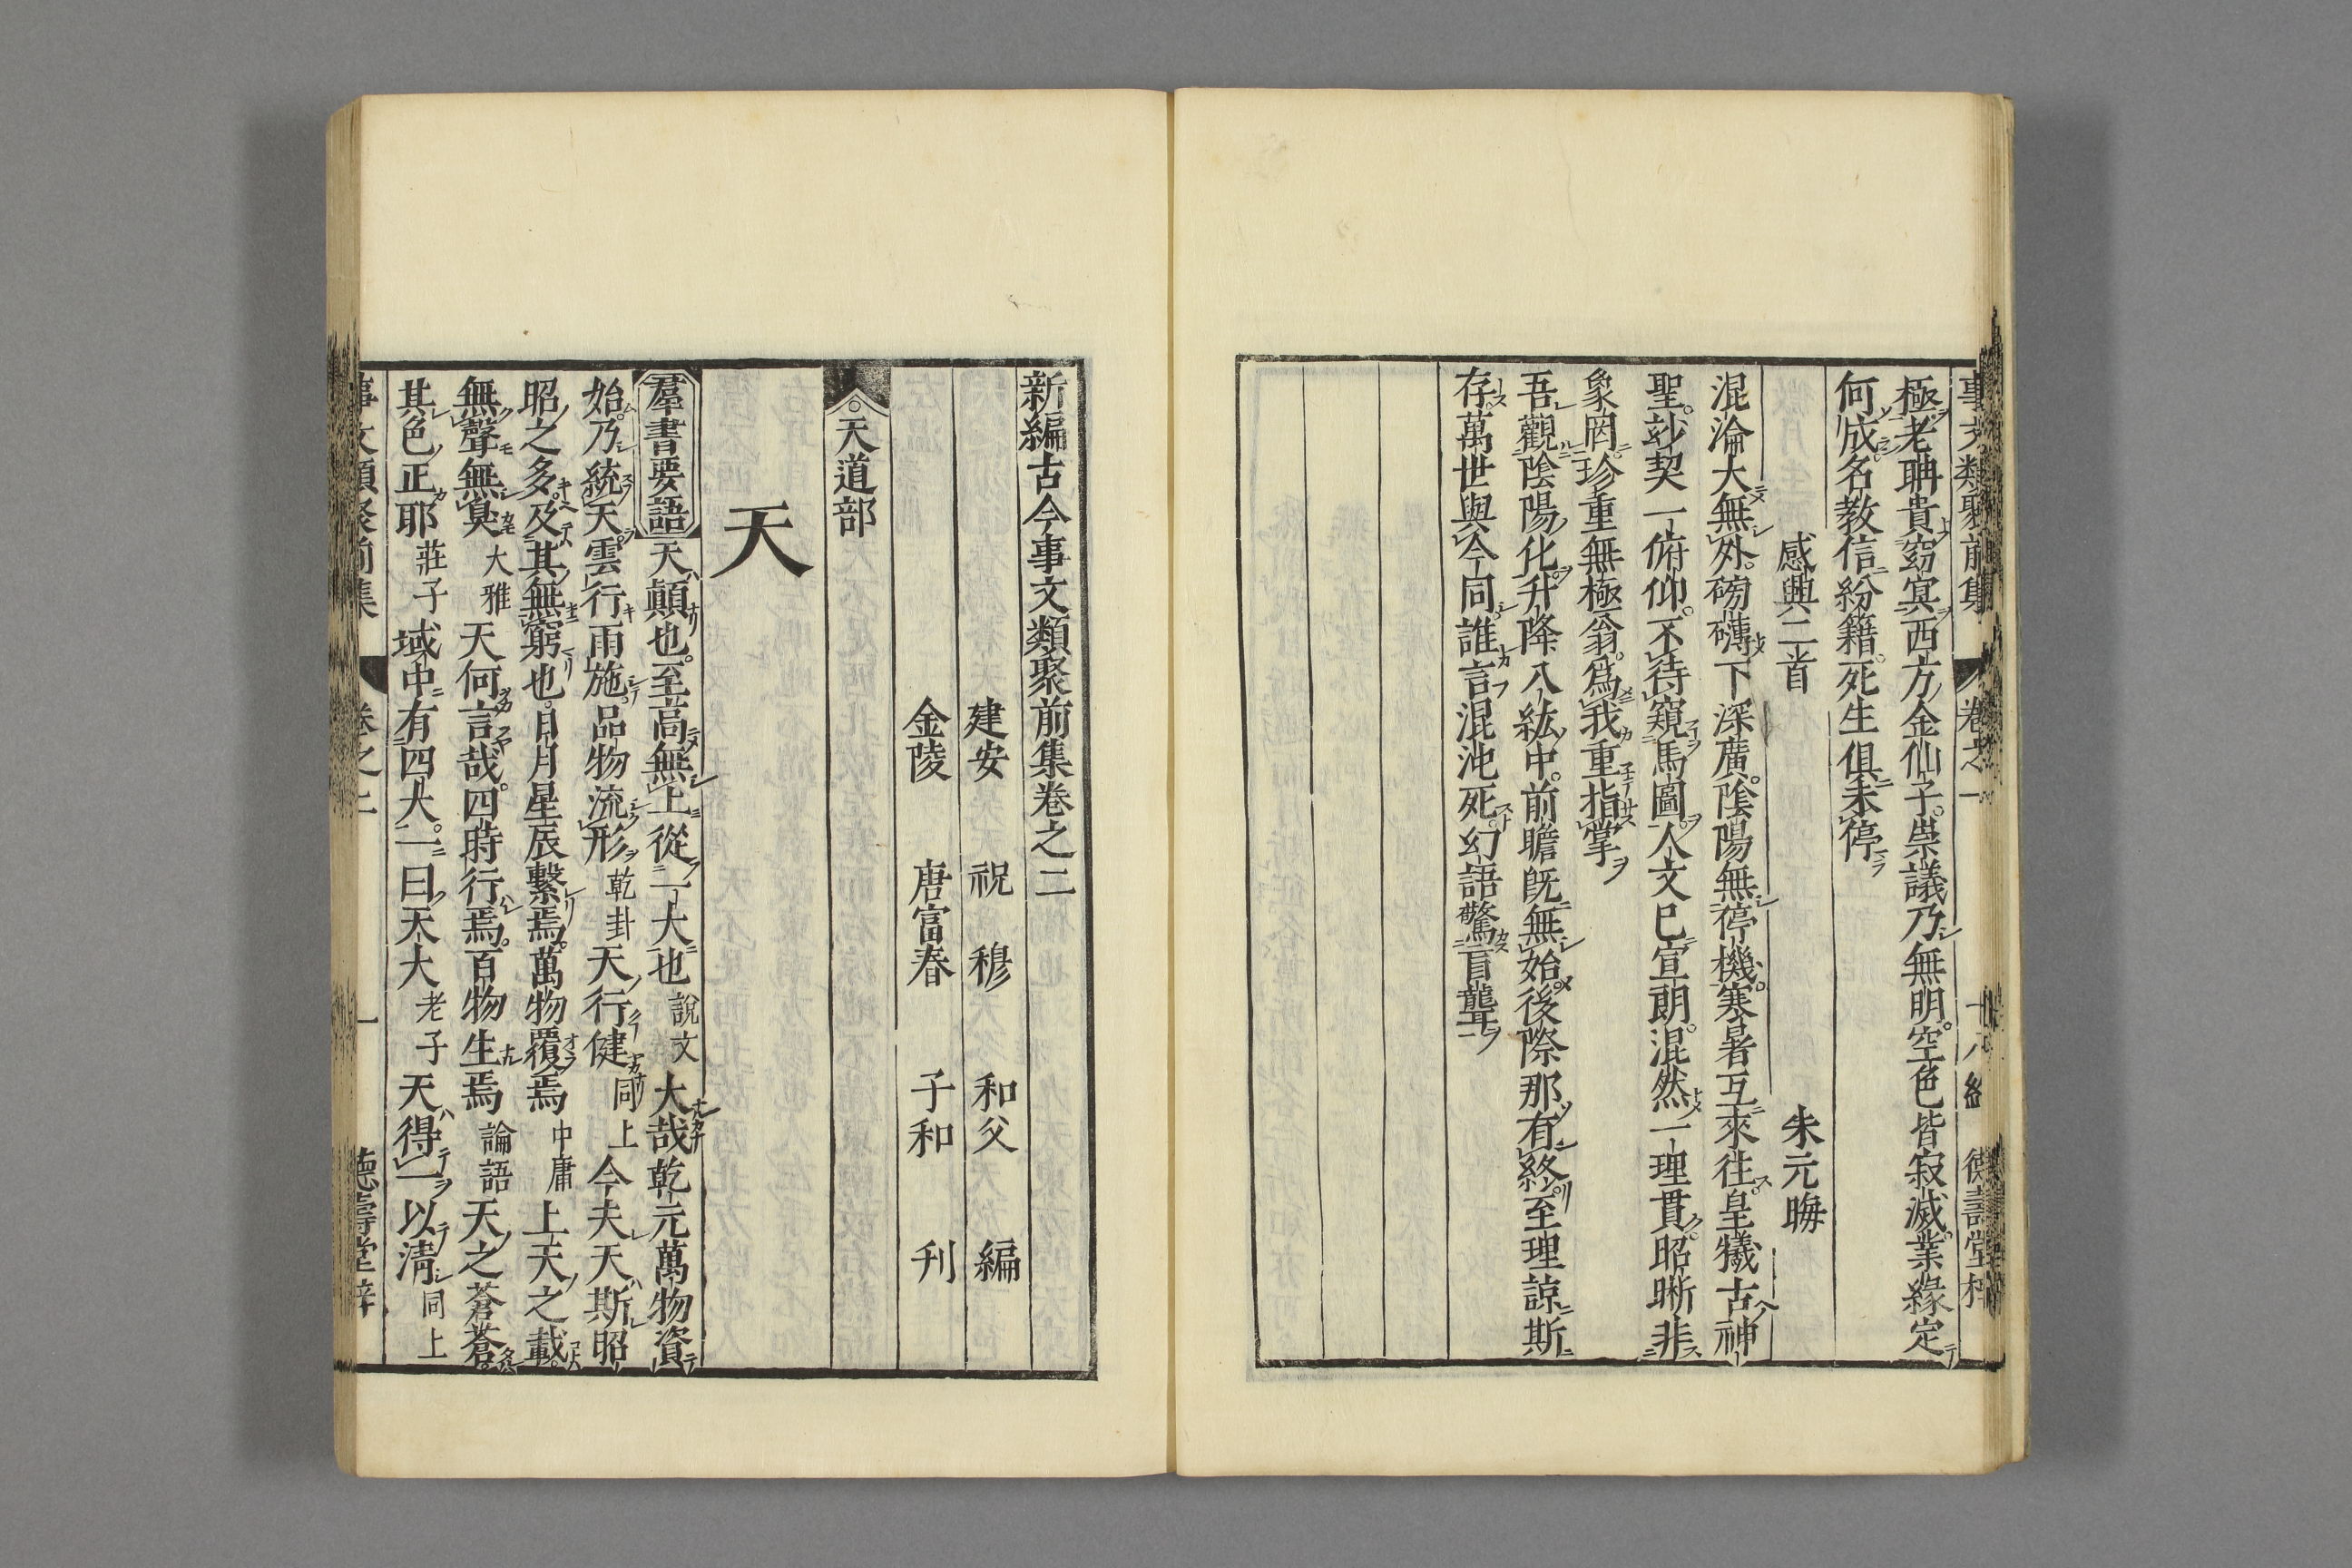 事文類聚前集 卷之一 十八 德壽堂梓
極老聃貴窈冥西方金仙子崇議乃無明空色皆寂滅業緣定
何成名教信紛籍死生俱未停
感興二首 朱元晦
混淪大無外磅礴下深廣陰陽無停機寒暑互來往皇犧古神
聖妙契一俯仰不待窺馬圖人文已宣朗混然一理貫昭晰非
象罔珍重無極翁爲我重指掌
吾觀陰陽化升降八紘中前瞻旣無始後際那有終至理諒斯
存萬世與今同誰言混沌死幻語驚盲聾
新編古今事文類聚前集卷之二
建安 祝 穆 和父 編
金陵 唐富春 子和 刊
天道部
天
羣書要語 天顚也至高無上從一大也 說文 大哉乾元萬物資
始乃統天雲行雨施品物流形 乾卦 天行健 同上 今夫天斯昭
昭之多及其無窮也日月星辰繫焉萬物覆焉 中庸 上天之載
無聲無臭 大雅 天何言哉四時行焉百物生焉 論語 天之蒼蒼
其色正耶 莊子 域中有四大一曰天大 老子 天得一以淸 同上
事文類聚前集 卷之二 一 德壽堂梓